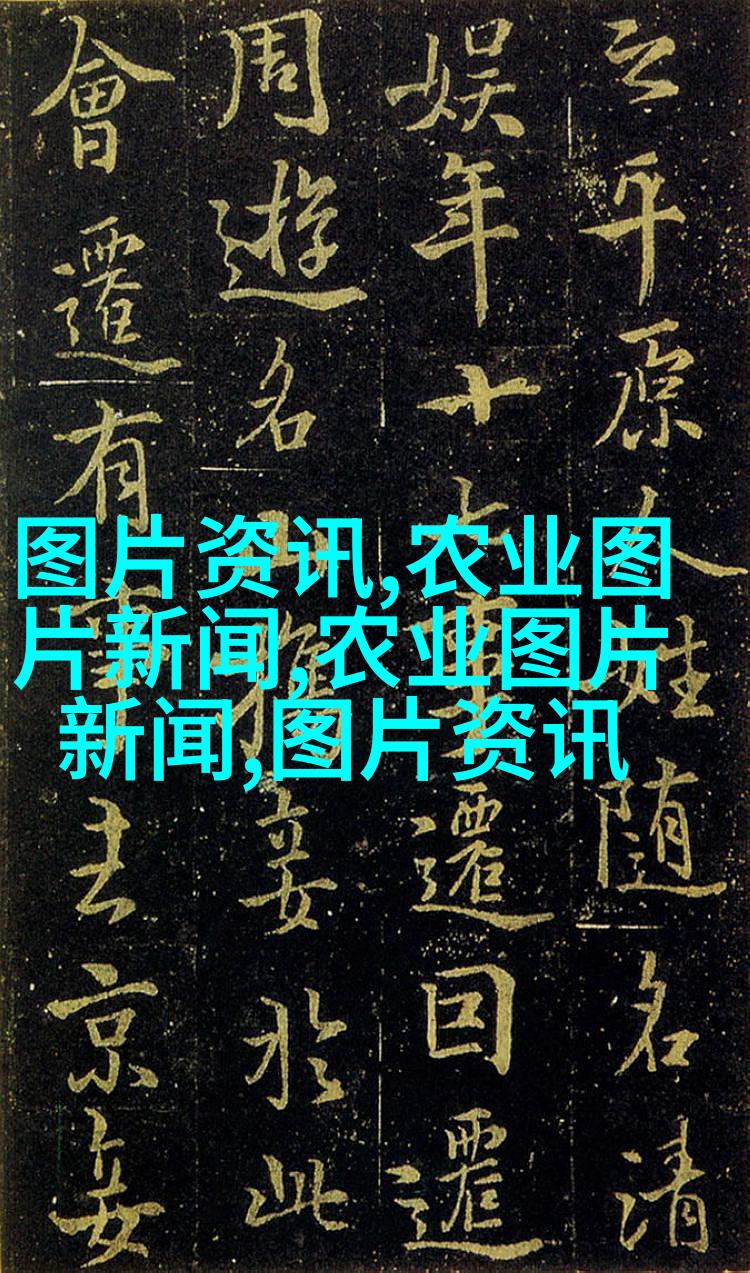 图片资讯,农业图
片新闻,农业图片
新闻,图片资讯
之平原人姓随名清
娱年十七事遷因遷
周遊名山携妾於此
會遷有事去京妾